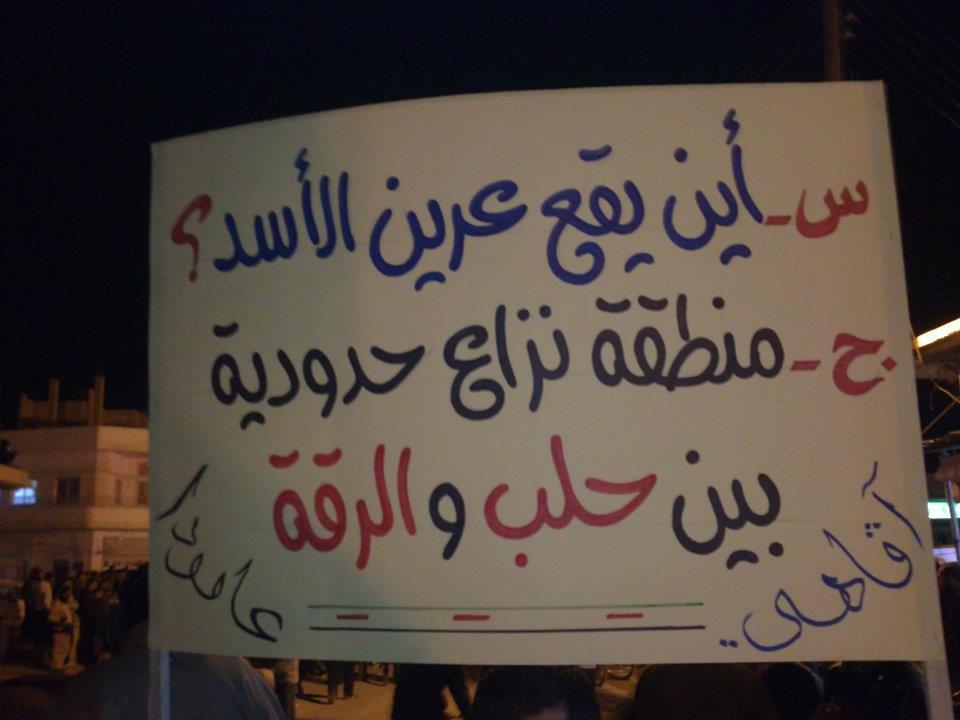 س - أين يقع عرين الأسد؟
ج - منطقة نزاع حدودية
بين حلب و الرقة
عامودا